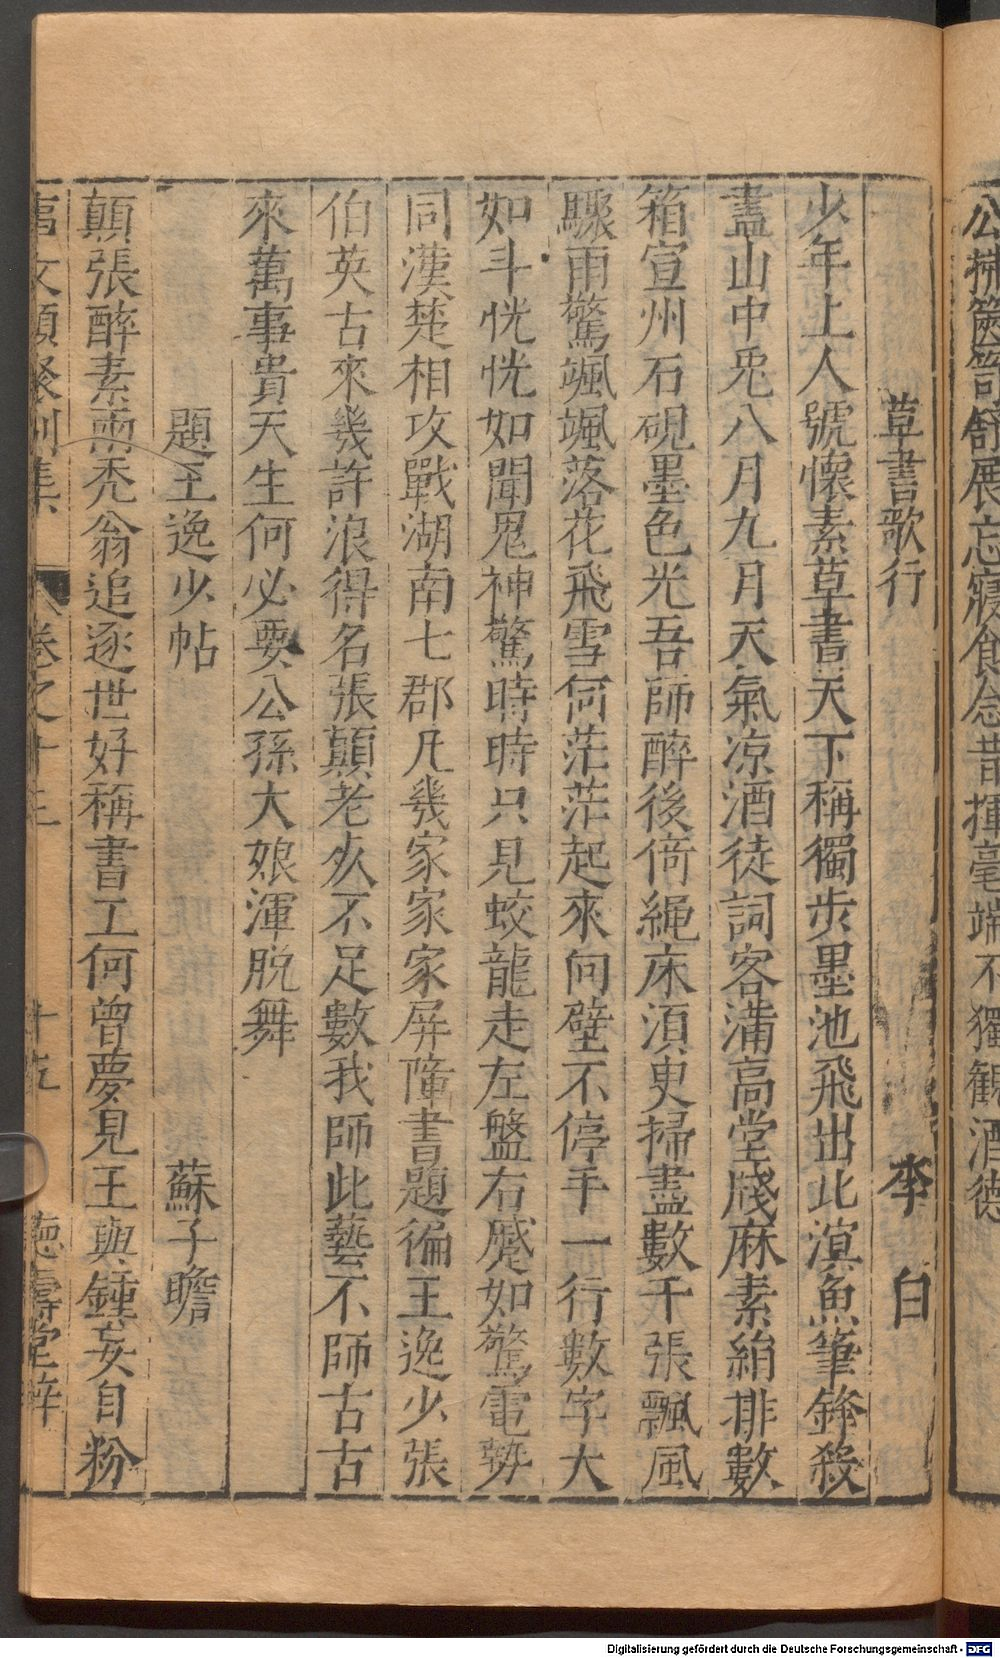 公拂篋笥舒展忘寢食念昔揮毫端不獨観酒德
草書歌行 李白
少年上人號懷素草書天下稱獨步墨池飛出北溟魚筆鋒殺
盡山中兎八月九月天氣凉酒徒詞客滿高堂牋麻素絹排數
箱宣州石硯墨色光吾師醉後倚繩床湏臾掃盡數千張飄風
驟雨驚颯颯落花飛雪何茫茫起來向壁不停手一行數字大
如斗恍恍如聞鬼神驚時時只見蛟龍走左盤右蹙如驚電勢
同漢楚相攻戰湖南七郡凡幾家家家屏障書題徧王逸少張
伯英古來幾許浪得名張顛老灰不足數我師此藝不師古古
來萬事貴天生何必要公孫大娘渾脱舞
題王逸少帖 蘇子瞻
顛張醉素兩禿翁追逐世好稱書工何曾夢見王與鍾妄自粉
事文類聚別集 卷之十三 十五 德壽堂梓
Digitalisierung gefördert durch die Deutsche Forschungsgemeinschaft - DFG